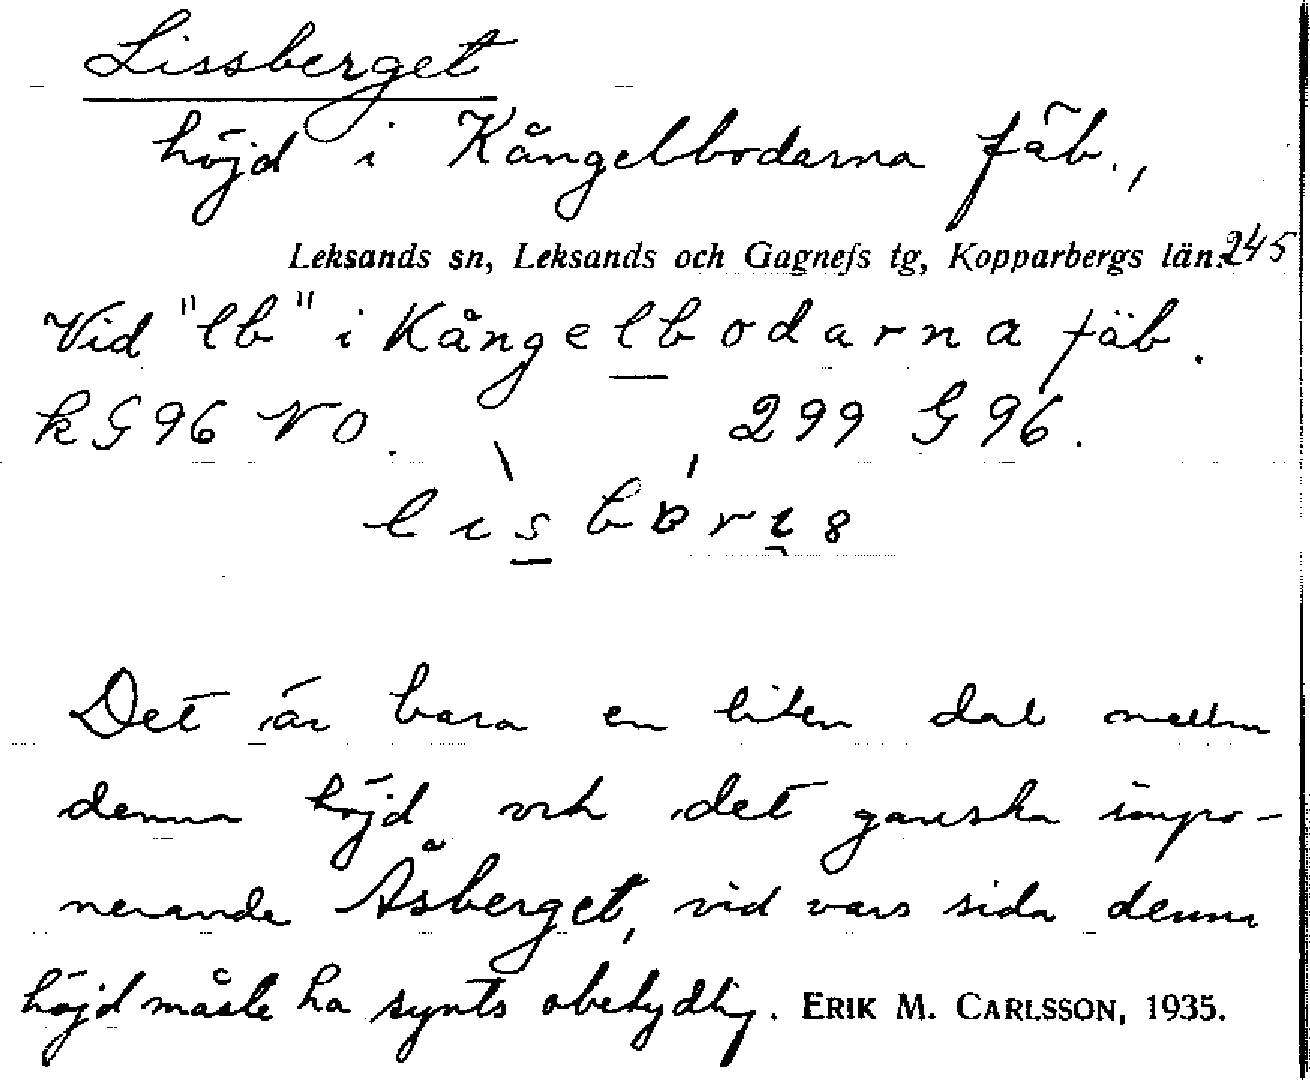 Lissberget
höjd i Kångelbodarna fäb.,
Leksands sn, Leksands och Gagnefs tg, Kopparbergs län. 245
Vid "lb" i Kångelbodarna fäb.
k G 96 NO. 299 G 96.
Det är bara en liten dal mellan
denna höjd och det ganska impo-
nerande Åsberget, vid vars sida denna
höjd måste ha synts obetydlig. ERIK M. CARLSSON, 1935.